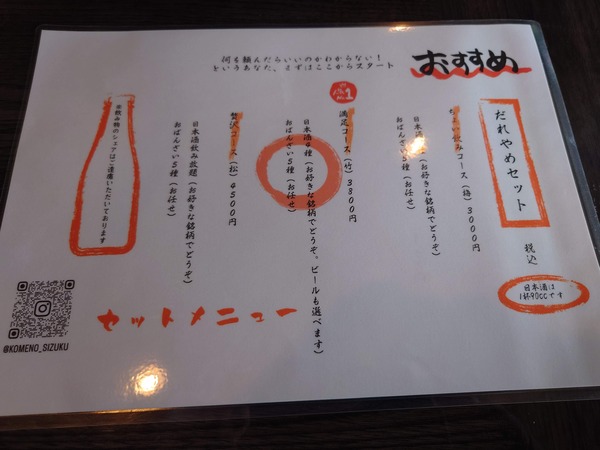 おすすめ
何を頼んだらいいのかわからない！
というあなた、まずはここからスタート
だれやめセット
税込
日本酒は
1杯90ccです
ちょい飲みコース（梅）3000円
日本酒 （お好きな銘柄でどうぞ）
おばんざい5種（お任せ）
満足コース（竹）3800円
日本酒4種（お好きな銘柄でどうぞ。ビールも選べます）
おばんざい5種（お任せ）
贅沢コース（松）4500円
日本酒飲み放題（お好きな銘柄でどうぞ）
おばんざい5種（お任せ）
※飲み物のシェアはご遠慮いただいております
セットメニュー
@KOMENO_SIZUKU